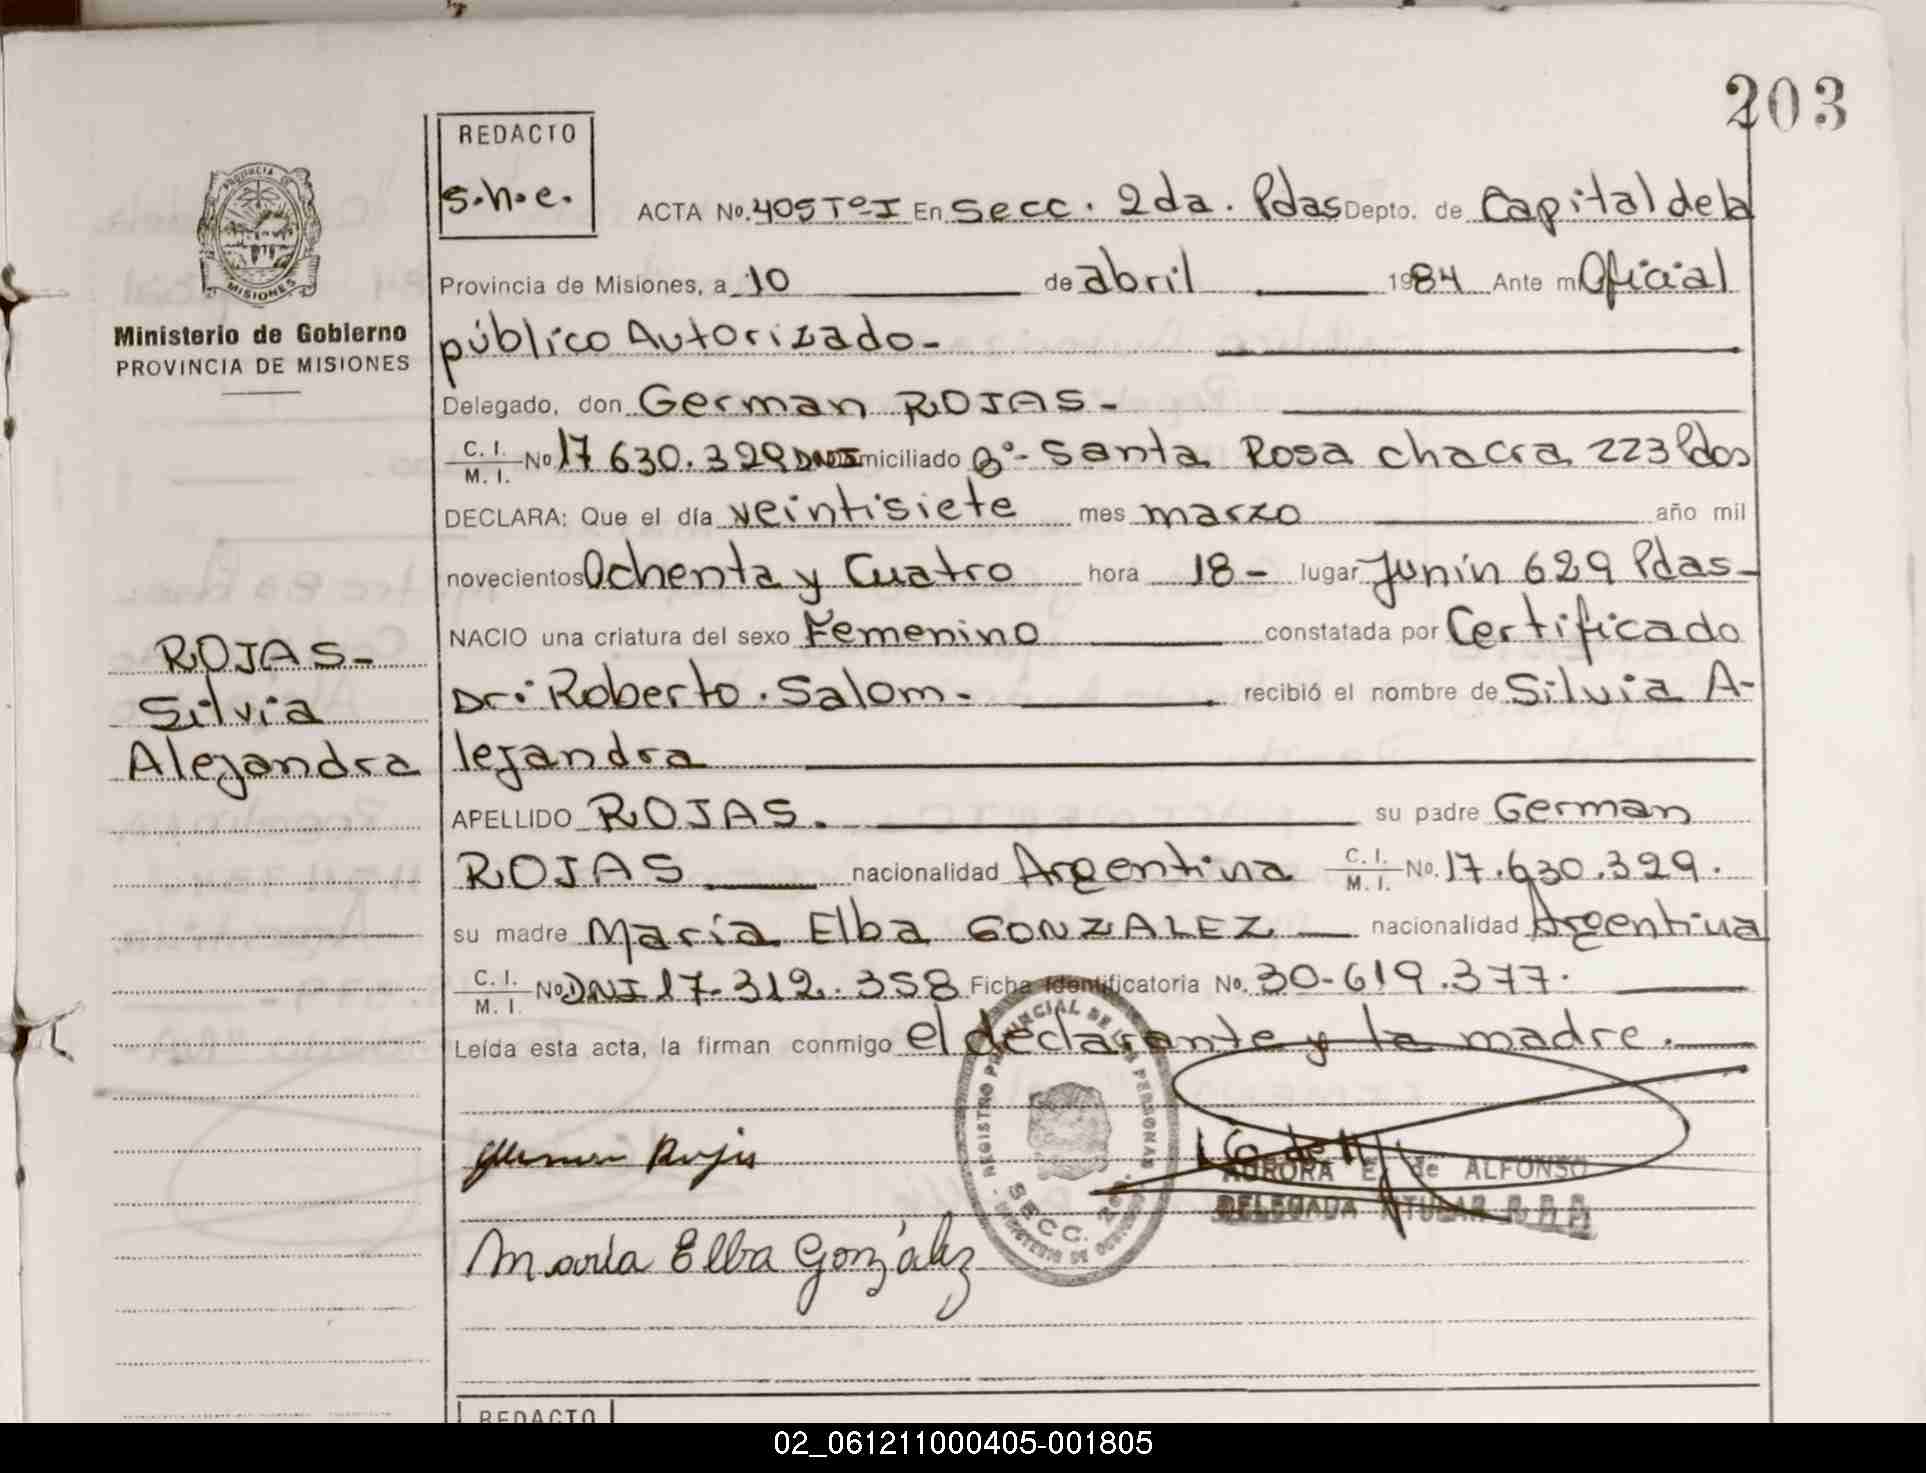 203
REDACTO
s.h.e.
PROVINCIA DE
MISIONES
Ministerio de Gobierno
PROVINCIA DE MISIONES
ROJAS-
Silvia
Alejandra
ACTA No. 405 Tº-I En Secc. 2da. Pdas Depto. de Capital de la
Provincia de Misiones, a 10 de abril 1984 Ante mí Oficial
público Autorizado-
Delegado, don German ROJAS-
C. I. / M. I. No 17 630.329 DNI Domiciliado Bº- Santa Rosa chacra 223 Pdas
DECLARA: Que el día veintisiete mes marzo año mil
novecientos Ochenta y Cuatro hora 18- lugar Junín 629 Pdas-
NACIO una criatura del sexo Femenino constatada por Certificado
Dr: Roberto. Salom- recibió el nombre de Silvia A-
lejandra
APELLIDO ROJAS. su padre German
ROJAS nacionalidad Argentina C. I. / M. I. No. 17.630.329.
su madre María Elba GONZALEZ nacionalidad Argentina
C. I. / M. I. No DNI 17.312.358 Ficha Identificatoria No. 30-619.377.
Leída esta acta, la firman conmigo el declarante y la madre.
German Rojas
María Elba González
REGISTRO PROVINCIAL DE LAS PERSONAS
SECC. 2a.
MINISTERIO DE GOBIERNO
AURORA E. de ALFONSO
DELEGADA TITULAR
REDACTO
02_061211000405-001805